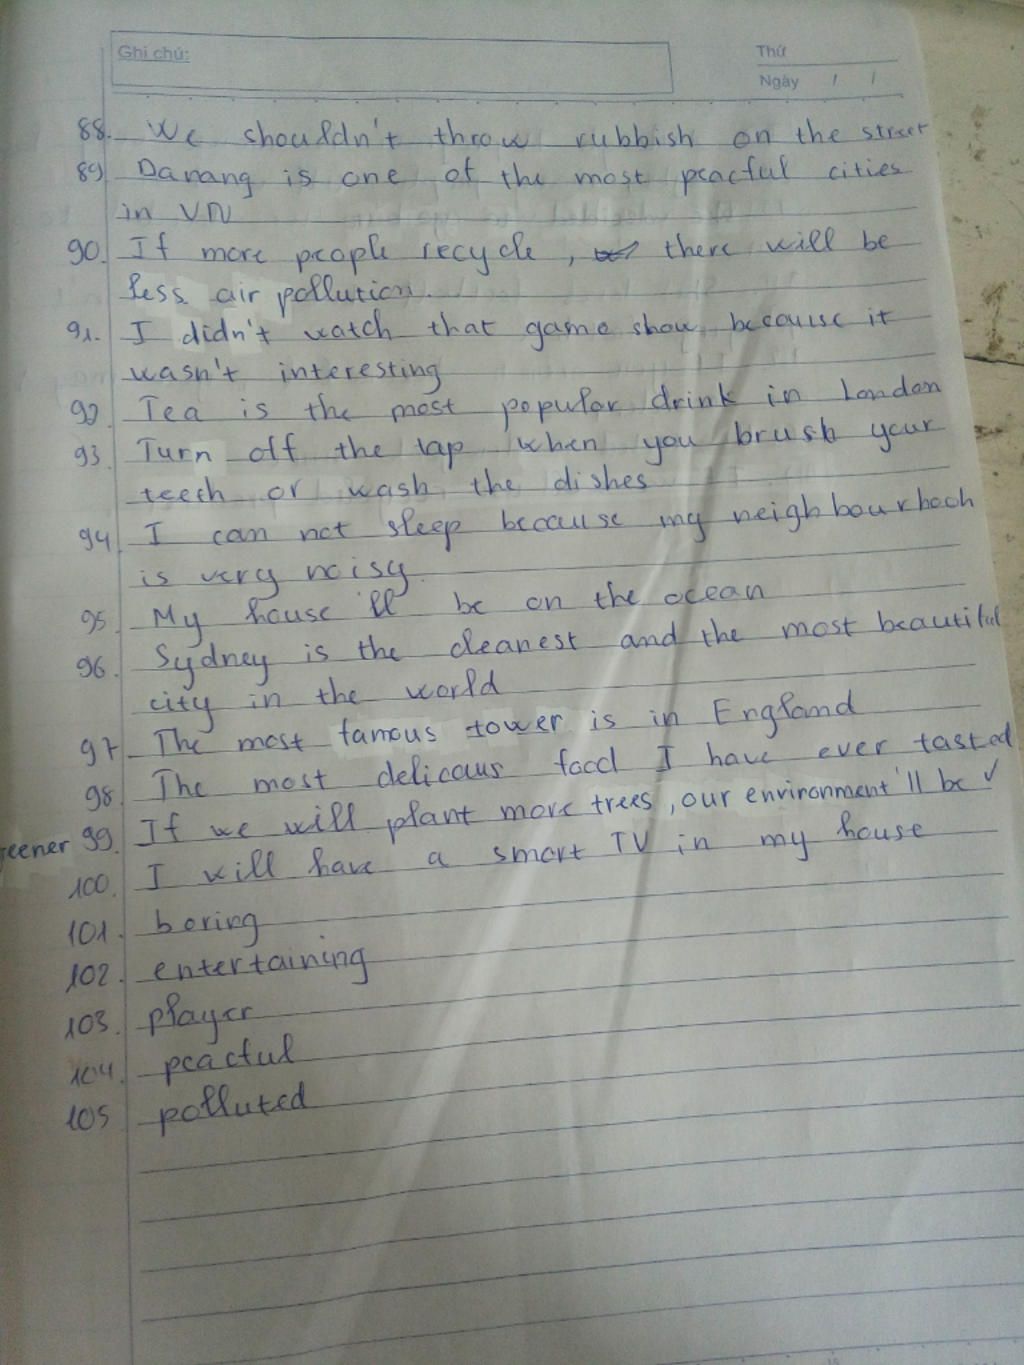 Ghi chú:
Thứ
Ngày / /
88. We shouldn't throw rubbish on the street
89 Danang is one of the most peacful cities
in VN
90. If more people recycle, there will be
less air pollution.
91. I didn't watch that game show because it
wasn't interesting
92. Tea is the most popular drink in London
93. Turn off the tap when you brush your
teeth or wash the dishes
94 I can not sleep because my neighbourhooh
is very noisy.
95. My house 'll be on the ocean
96. Sydney is the cleanest and the most beautiful
city in the world
97. The most famous tower is in England
98 The most delicous food I have ever tasted
99. If we will plant more trees, our environment 'll be ✓
reener
100. I will have a smart TV in my house
101. boring
102. entertaining
103. player
104. peacful
105 polluted